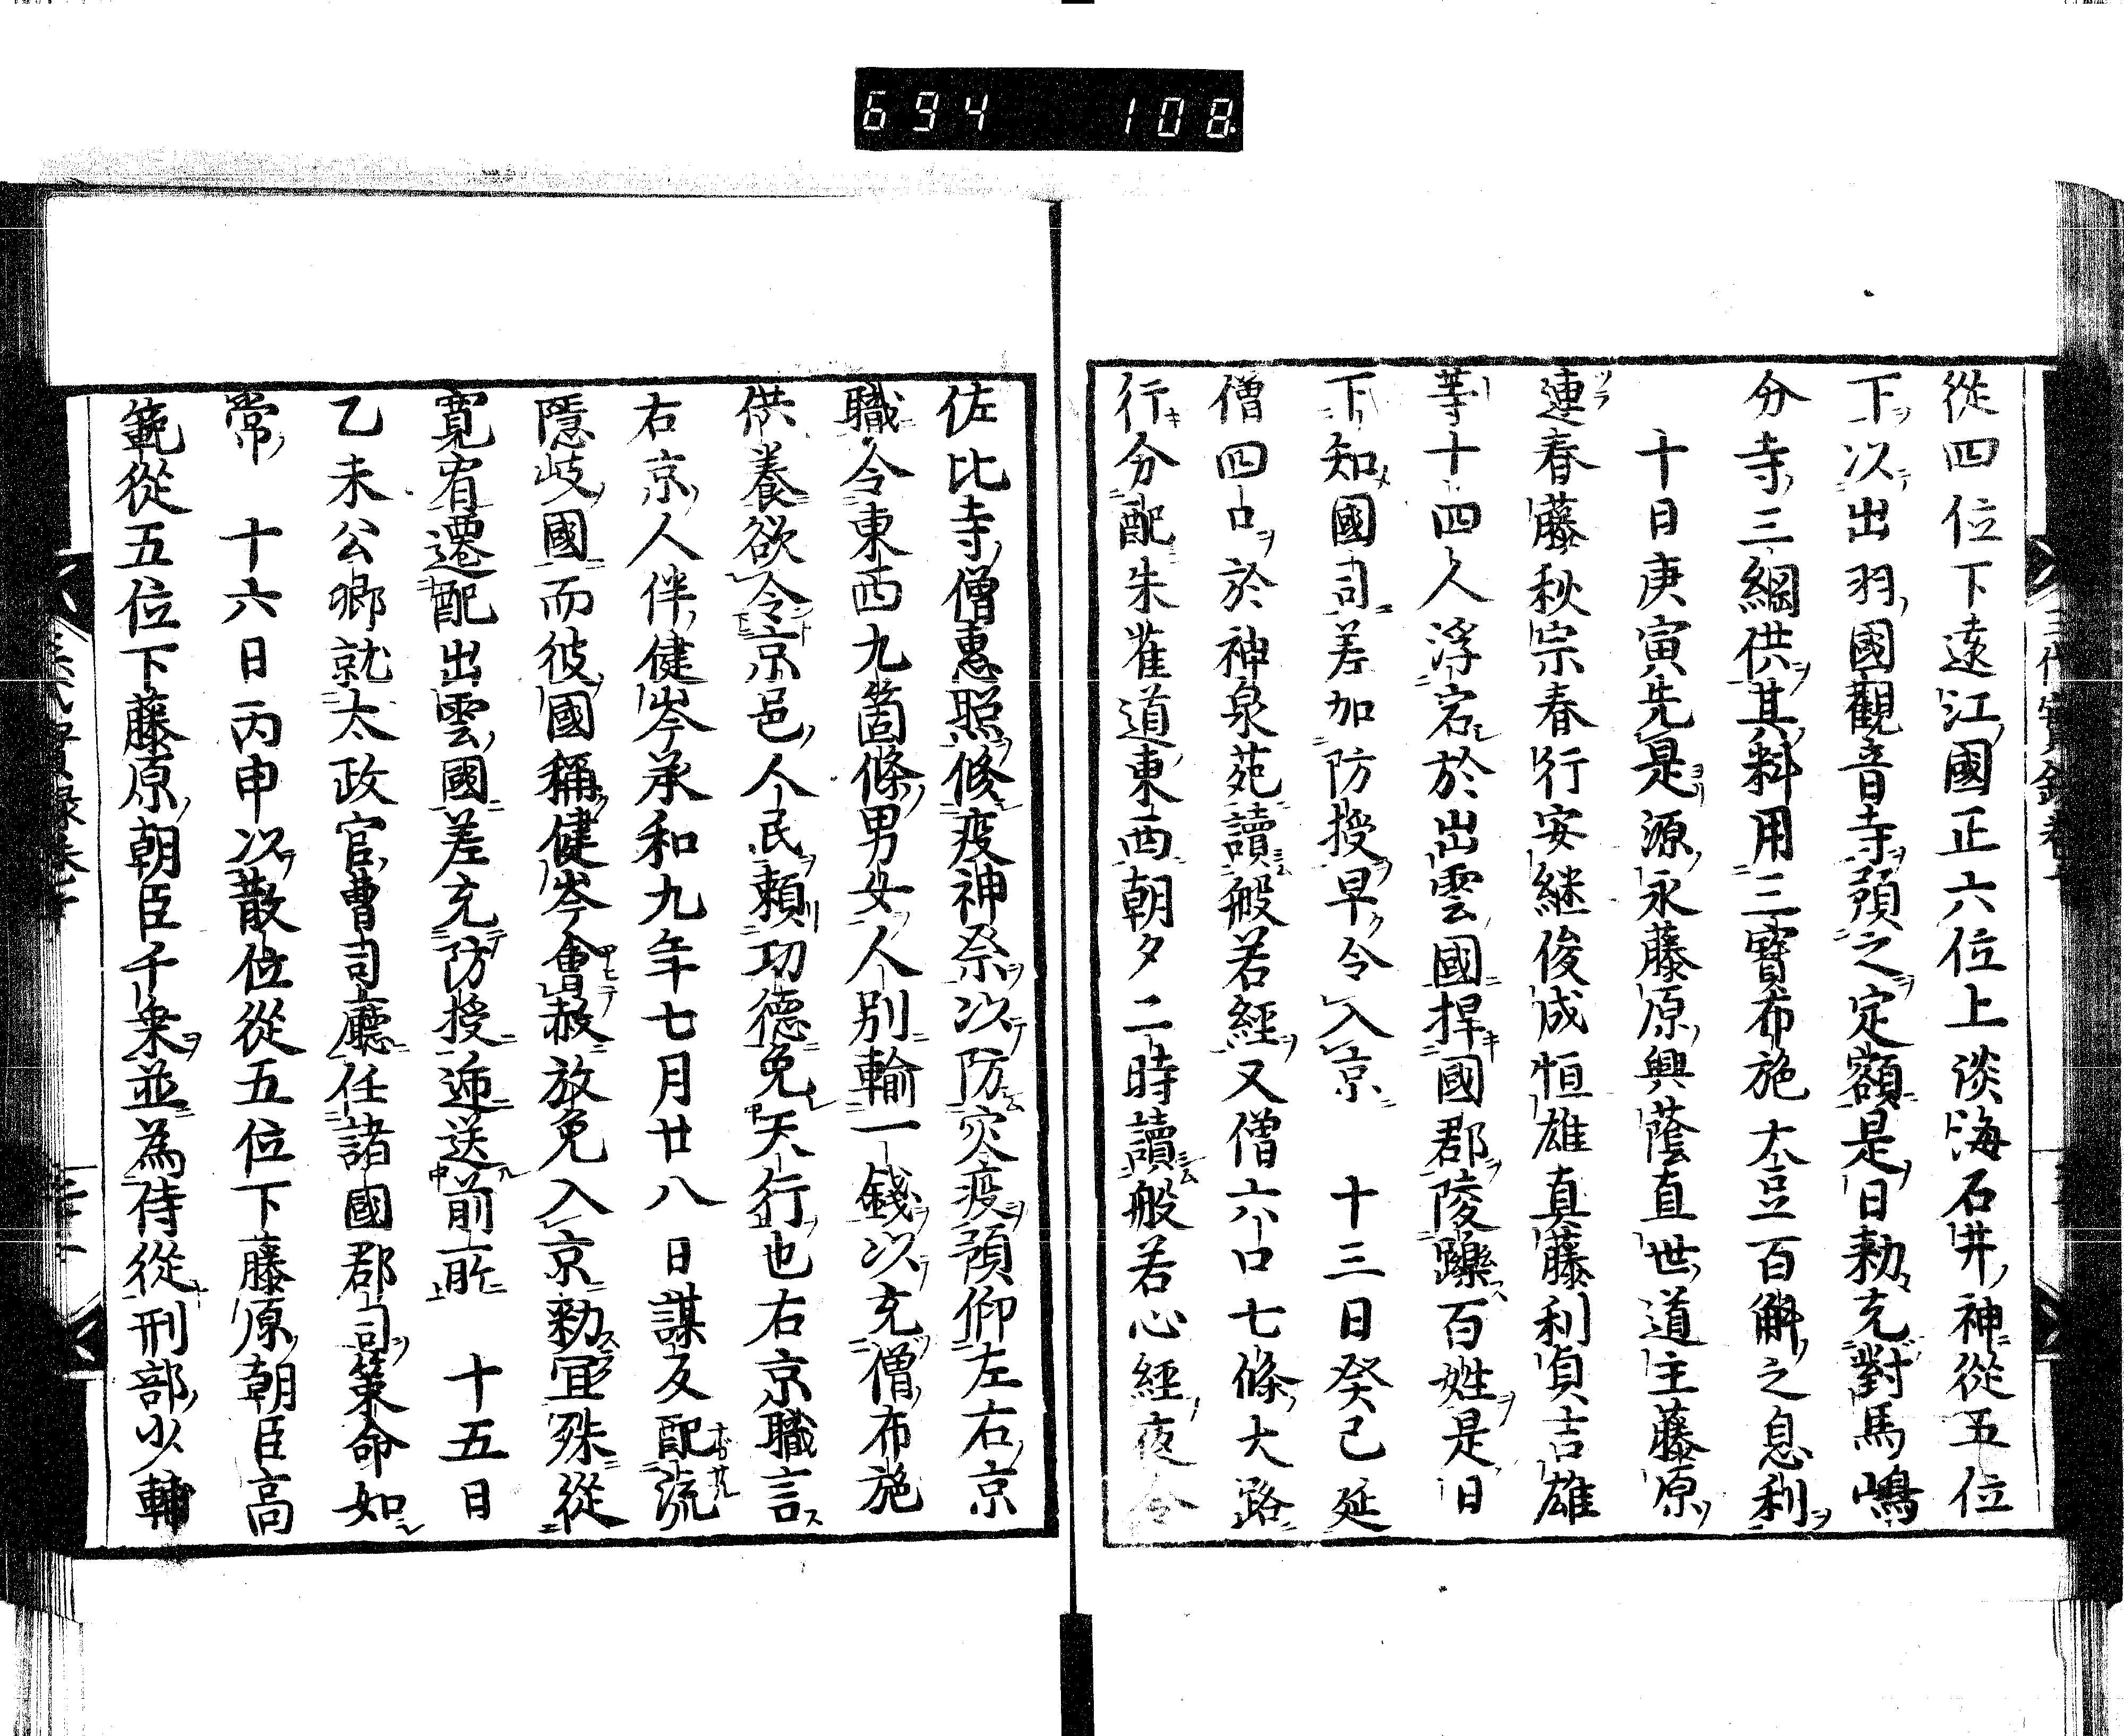 694 108
從四位下遠江國正六位上淡海石井神從五位
下以出羽國觀音寺預之定額是日勅充對馬嶋
分寺三綱供其料用三寳布施大豆一百斛之息利
十日庚寅先是源永藤原興蔭直世道主藤原
連春藤秋宗春行安継俊成恒雄真藤利貞吉雄
等十四人浮宕於出雲國捍國郡陵轢百姓是日
下知國司差加防授早令入京 十三日癸巳延
僧四口於神泉苑讀般若經又僧六口七條大路
行分配朱雀道東西朝夕二時讀般若心經夜令
佐比寺僧惠照修疫神祭以防灾疫預仰左右京
職令東西九箇條男女人別輸一錢以充僧布施
供養欲令京邑人民頼功德免天行也右京職言
右京人伴健岑承和九年七月廿八日謀反配流
隱岐國而彼國稱健岑會赦放免入京勅宜殊從
寛宥遷配出雲國差充防授逓送前所 十五日
乙未公卿就太政官曹司廳任諸國郡司策命如
常 十六日丙申以散位從五位下藤原朝臣高
範從五位下藤原朝臣千乗並為侍從刑部少輔